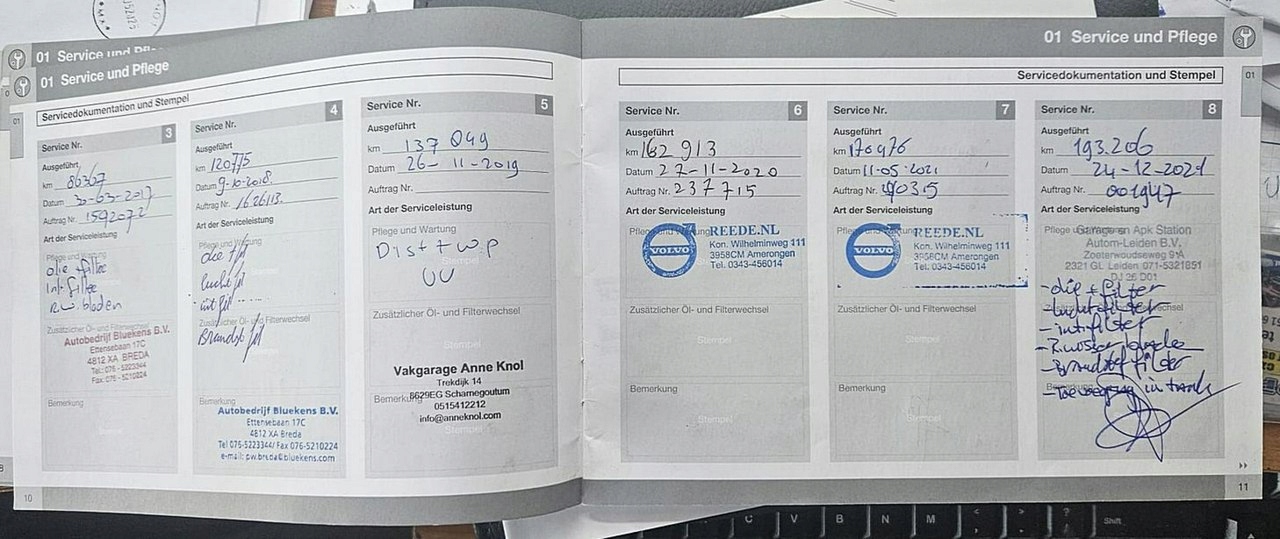 01 Service und Pflege
01 Service und Pflege
Servicedokumentation und Stempel
Service Nr. 3
Ausgeführt
km 86367
Datum 30-03-2017
Auftrag Nr. 1592072
Art der Serviceleistung
Pflege und Wartung
olie filter
Int. filter
R.w. bladen
Zusätzlicher Öl- und Filterwechsel
Autobedrijf Bluekens B.V.
Ettensebaan 17C
4812 XA BREDA
Tel.: 076 - 5223344
Fax: 076 - 5210224
Bemerkung
Service Nr. 4
Ausgeführt
km 120775
Datum 9-10-2018
Auftrag Nr. 1626113
Art der Serviceleistung
Pflege und Wartung
olie + fil
Luchtfil
int fil
Brandst fil
Zusätzlicher Öl- und Filterwechsel
Bemerkung
Autobedrijf Bluekens B.V.
Ettensebaan 17C
4812 XA Breda
Tel 076-5223344/ Fax 076-5210224
e-mail: pw.breda@bluekens.com
Service Nr. 5
Ausgeführt
km 137 049
Datum 26-11-2019
Auftrag Nr.
Art der Serviceleistung
Pflege und Wartung
Dist + w.p
Stempel
Zusätzlicher Öl- und Filterwechsel
Stempel
Vakgarage Anne Knol
Trekdijk 14
Bemerkung
8629EG Scharnegoutum
0515412212
info@anneknol.com
Stempel
10
01 Service und Pflege
Servicedokumentation und Stempel
01
Service Nr. 6
Ausgeführt
km 162 913
Datum 27-11-2020
Auftrag Nr. 237715
Art der Serviceleistung
Pflege und Wartung
VOLVO
REEDE.NL
Kon. Wilhelminweg 111
3958CM Amerongen
Tel. 0343-456014
Zusätzlicher Öl- und Filterwechsel
Stempel
Bemerkung
Stempel
Service Nr. 7
Ausgeführt
km 170476
Datum 11-05-2021
Auftrag Nr.
Art der Serviceleistung
Pflege und Wartung
VOLVO
REEDE.NL
Kon. Wilhelminweg 111
3958CM Amerongen
Tel. 0343-456014
Zusätzlicher Öl- und Filterwechsel
Stempel
Bemerkung
Stempel
Service Nr. 8
Ausgeführt
km 193.206
Datum 24-12-2021
Auftrag Nr. 001947
Art der Serviceleistung
Garage en Apk Station
Autom-Leiden B.V.
Zoeterwoudseweg 9A
2321 GL Leiden 071-5321851
- olie + filter
- luchtfilter
- int. filter
- Brandstof filder
- Toevoeging in tank
Bemerkung
11
C V B N M Shift